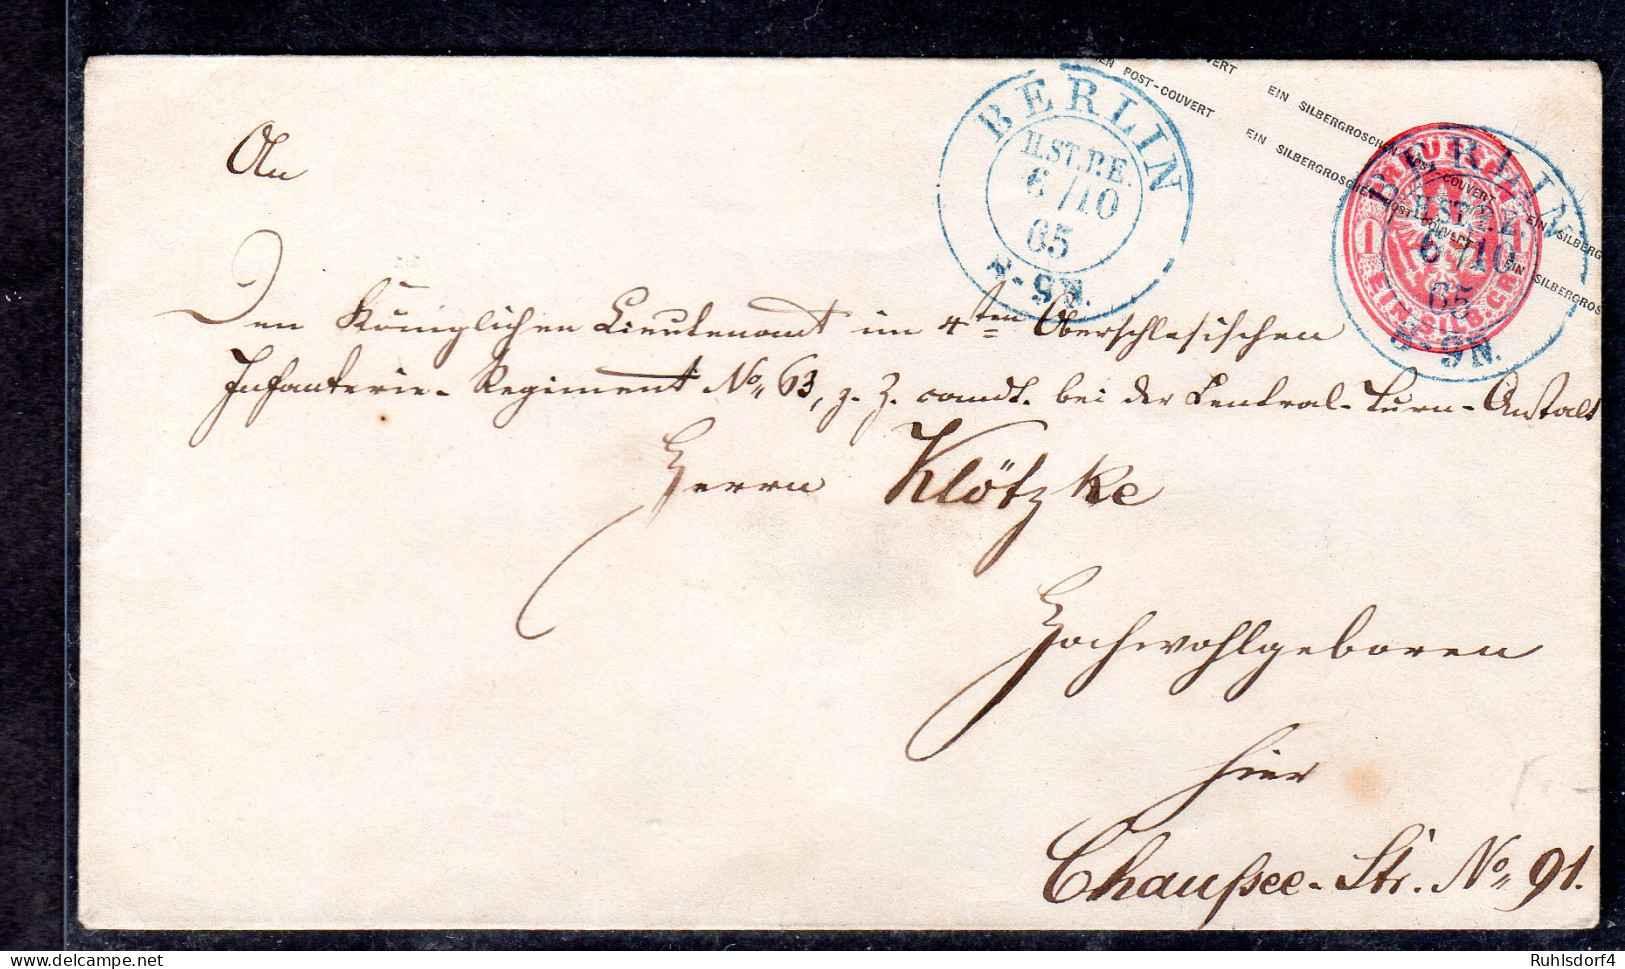 BERLIN
H.ST.P.E.
6/10
65
N-9N.
POST-COUVERT
EIN SILBERGROSCHEN POST-COUVERT EIN SILBERG
EIN SILBERGROSCHEN POST-COUVERT EIN SILBERGROS
1 1
EIN SILB. GR.
BERLIN
6/10
65
An
Den Königlichen Lieutenant im 4ten Oberschlesischen
Infanterie-Regiment No 63, z. Z. comdt. bei der Central-Turn-Anstalt
Herrn Klötzke
Hochwohlgeboren
hier
Chaußee-Str. No 91.
delcampe.net
Ruhlsdorf4